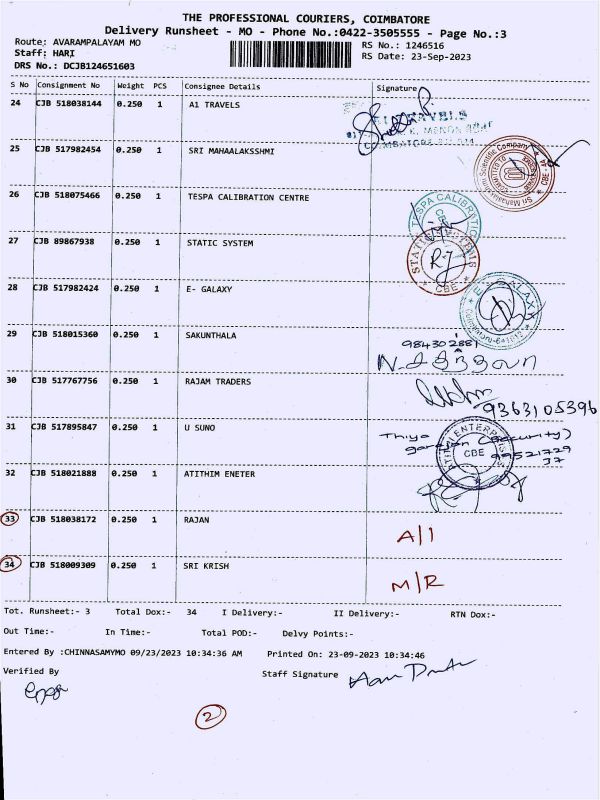 THE PROFESSIONAL COURIERS, COIMBATORE
Delivery Runsheet - MO - Phone No.:0422-3505555 - Page No.:3
Route: AVARAMPALAYAM MO
RS No.: 1246516
Staff: HARI
RS Date: 23-Sep-2023
DRS No.: DCJB124651603
S No Consignment No Weight PCS Consignee Details Signature
24 CJB 518038144 0.250 1 A1 TRAVELS
25 CJB 517982454 0.250 1 SRI MAHAALAKSSHMI
26 CJB 518075466 0.250 1 TESPA CALIBRATION CENTRE
TESPA CALIBRATION
27 CJB 89867938 0.250 1 STATIC SYSTEM
CBE
28 CJB 517982424 0.250 1 E- GALAXY
29 CJB 518015360 0.250 1 SAKUNTHALA
9843028811
30 CJB 517767756 0.250 1 RAJAM TRADERS
9363105396
31 CJB 517895847 0.250 1 U SUNO
Thiya
(security)
CBE
99521729
37
32 CJB 518021888 0.250 1 ATITHIM ENETER
33 CJB 518038172 0.250 1 RAJAN
A/1
34 CJB 518009309 0.250 1 SRI KRISH
M/R
Tot. Runsheet:- 3 Total Dox:- 34 I Delivery:- II Delivery:- RTN Dox:-
Out Time:- In Time:- Total POD:- Delvy Points:-
Entered By :CHINNASAMYMO 09/23/2023 10:34:36 AM Printed On: 23-09-2023 10:34:46
Verified By
Staff Signature
2